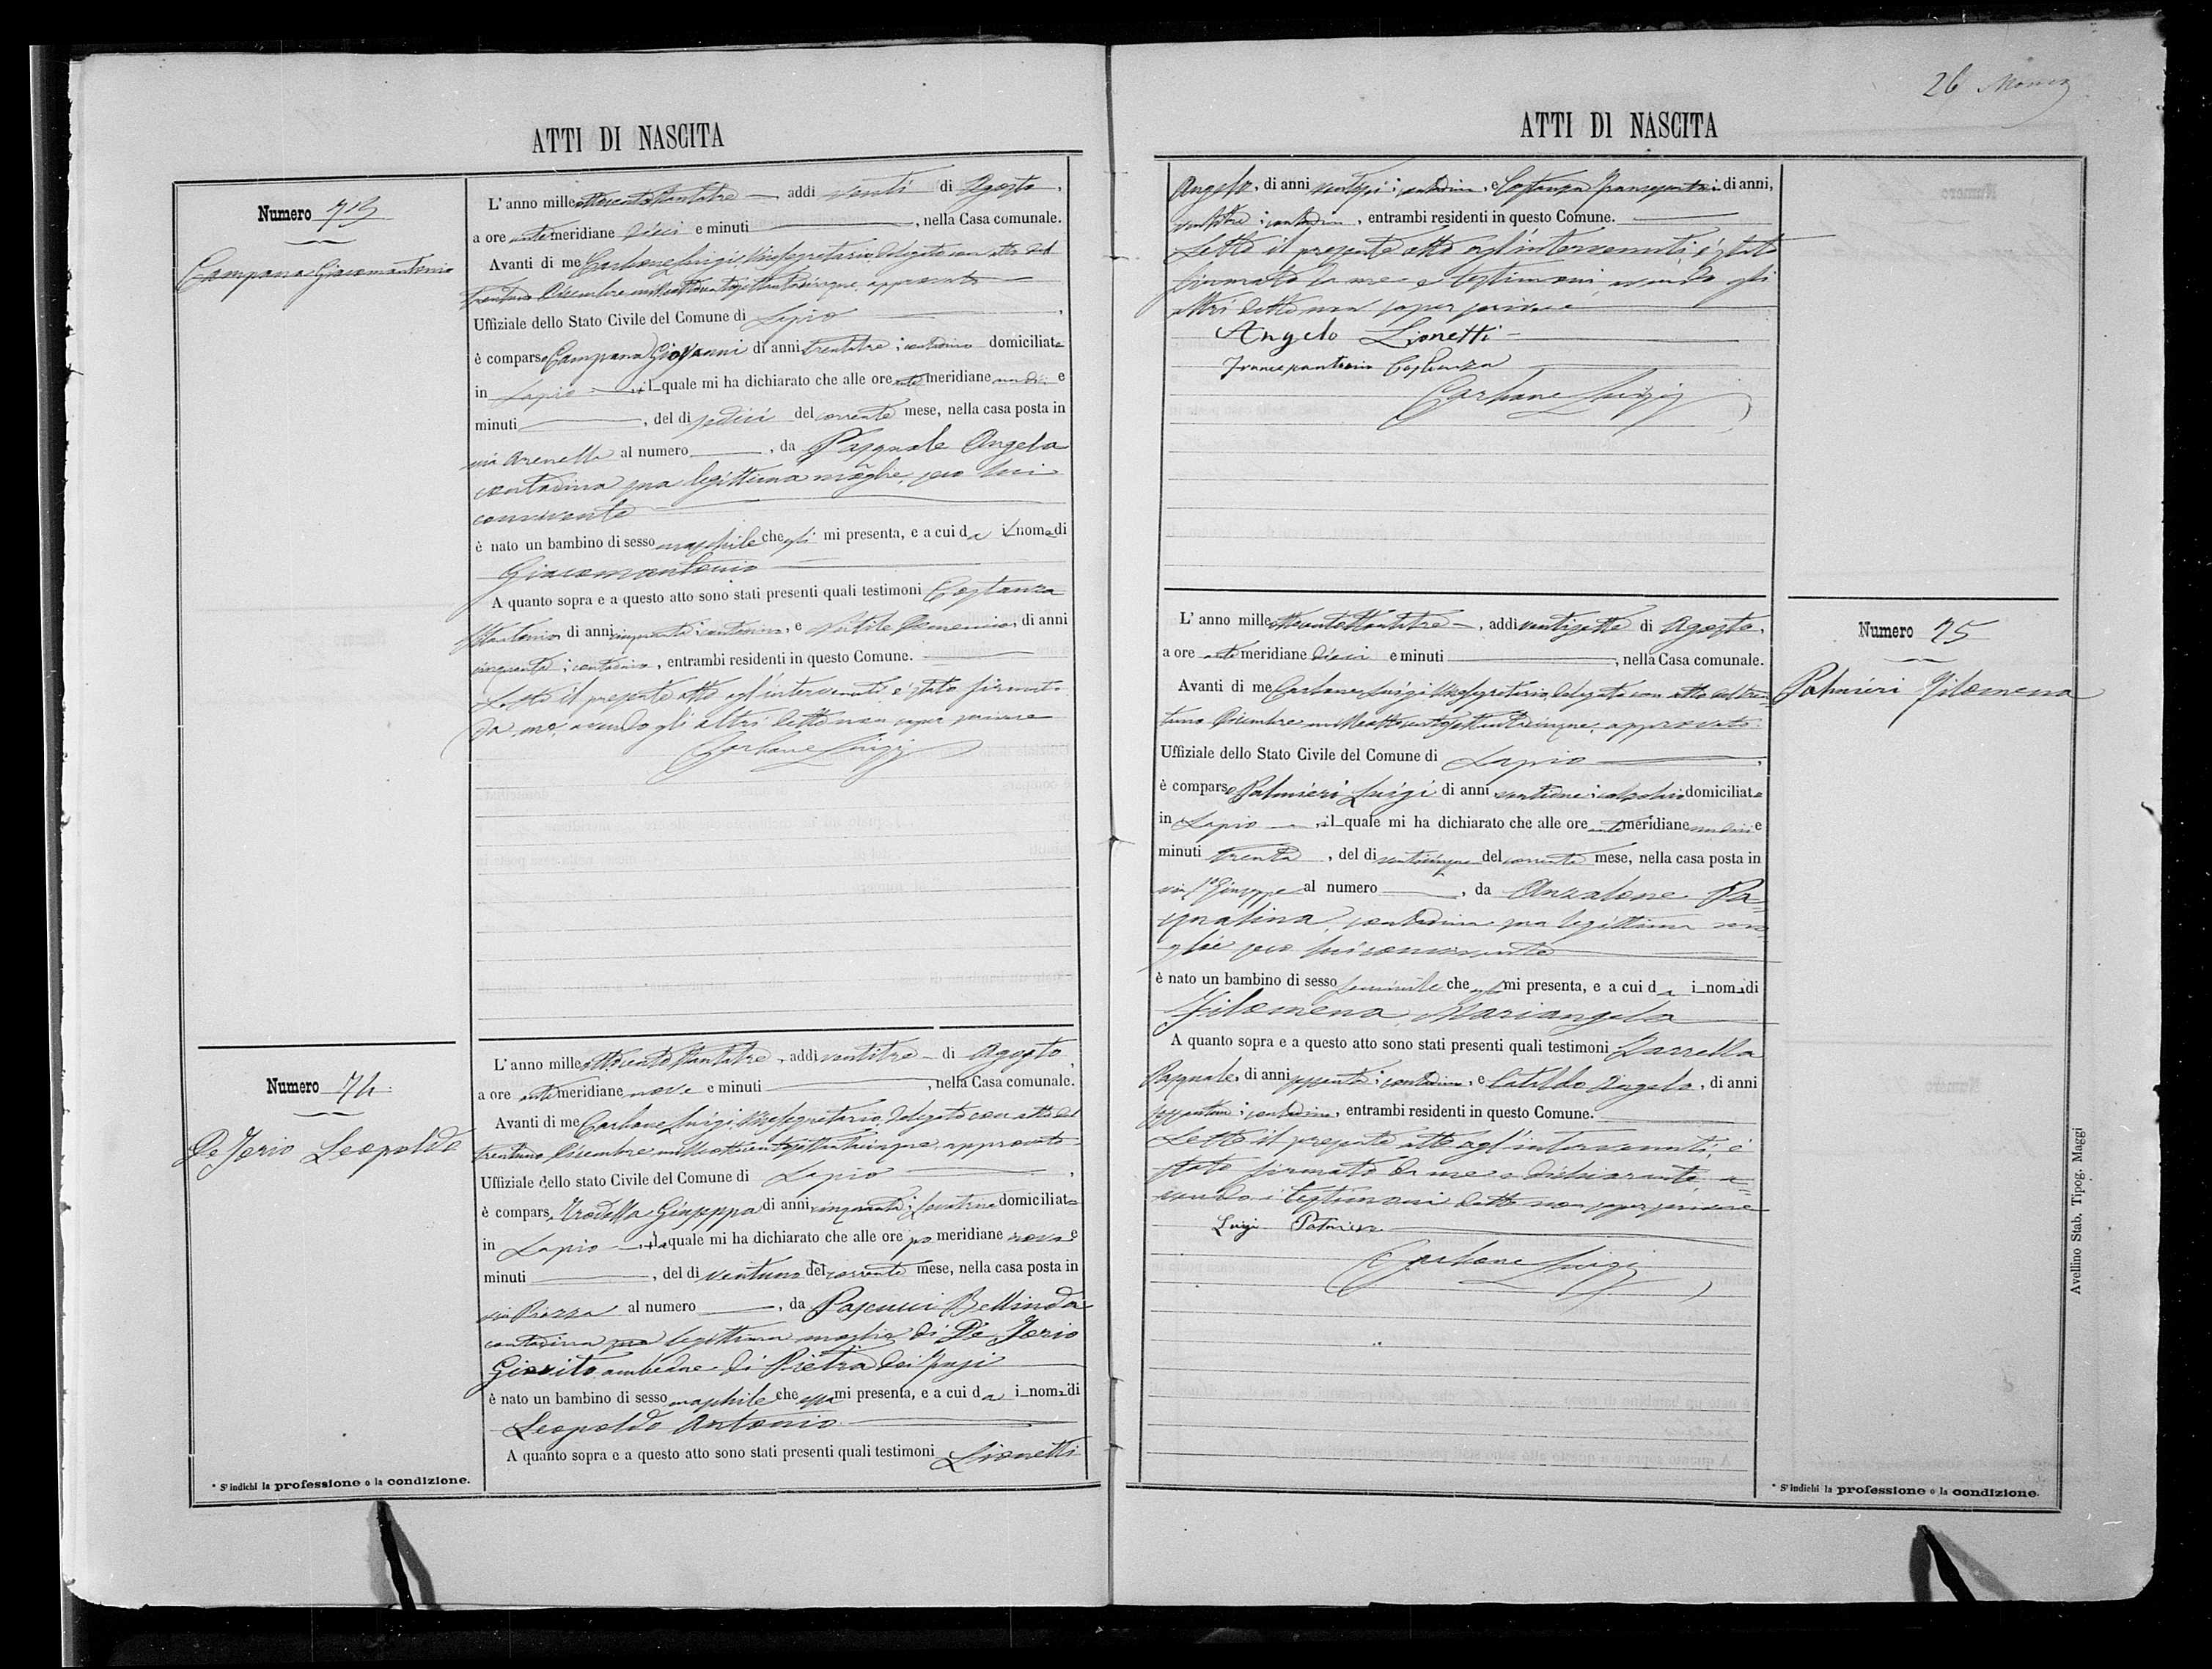 ATTI DI NASCITA
Numero 73
Campana Giacomantonio
L'anno milleottocentottantatre, addi venti di Agosto,
a ore antemeridiane dieci e minuti, nella Casa comunale.
Avanti di me Carbone Luigi, Vicesegretario delegato con atto del
trentuno Dicembre milleottocentosettantacinque, approvato
Uffiziale dello Stato Civile del Comune di Lapio,
è comparso Campana Giovanni di anni trentatre; contadino domiciliato
in Lapio, il quale mi ha dichiarato che alle ore antemeridiane undici e
minuti, del dì sedici del corrente mese, nella casa posta in
via Arenella al numero, da Pasquale Angela
contadina sua legittima moglie, seco lui
convivente
è nato un bambino di sesso maschile che egli mi presenta, e a cui da il nome di
Giacomantonio
A quanto sopra e a questo atto sono stati presenti quali testimoni Costanza
di anni cinquanta; contadino, e Domenico, di anni
cinquanta; contadino, entrambi residenti in questo Comune.
Letto il presente atto agl'intervenuti è stato firmato
da me, avendo gli altri detto non saper scrivere
Carbone Luigi
Numero 74
De Jorio Leopoldo
L'anno milleottocentottantatre, addi ventitre di Agosto,
a ore antemeridiane nove e minuti, nella Casa comunale.
Avanti di me Carbone Luigi, Vicesegretario, delegato con atto del
trentuno Dicembre milleottocentosettantacinque, approvato
Uffiziale dello stato Civile del Comune di Lapio,
è comparsa Trodella Giuseppa di anni cinquanta; levatrice domiciliata
in Lapio, la quale mi ha dichiarato che alle ore pomeridiane nove e
minuti, del dì ventuno del corrente mese, nella casa posta in
via Piazza al numero, da Pascucci Bellinda
contadina sua legittima moglie di De Jorio
Giovito ambedue di Pietra dei Fusi
è nato un bambino di sesso maschile che essa mi presenta, e a cui da i nome di
Leopoldo Antonio
A quanto sopra e a questo atto sono stati presenti quali testimoni Lionetti
* S'indichi la professione o la condizione.
26
ATTI DI NASCITA
Angelo, di anni ventisei; contadino, e Costanza Francesantonio di anni,
ventitre; contadino, entrambi residenti in questo Comune.
Letto il presente atto agl'intervenuti, è stato
firmato da me e testimoni, avendo gli
altri detto non saper scrivere
Angelo Lionetti
Francesantonio Costanza
Carbone Luigi
Numero 75
Palmieri Filomena
L'anno milleottocentottantatre, addi ventisette di Agosto,
a ore antemeridiane dieci e minuti, nella Casa comunale.
Avanti di me Carbone Luigi Vicesegretario, delegato con atto del tren-
tuno Dicembre milleottocentosettantacinque, approvato
Uffiziale dello Stato Civile del Comune di Lapio,
è comparso Palmieri Luigi di anni ventinove; calzolaio domiciliato
in Lapio, il quale mi ha dichiarato che alle ore antemeridiane undici e
minuti trenta, del dì venticinque del corrente mese, nella casa posta in
via S. Giuseppe al numero, da Anzalone Pa-
squalina, contadina sua legittima mo-
glie seco lui convivente
è nato un bambino di sesso femminile che egli mi presenta, e a cui da i nome di
Filomena, Mariangela
A quanto sopra e a questo atto sono stati presenti quali testimoni Zarrella
Pasquale, di anni sessanta; contadino, e Cataldo Angelo, di anni
contadino, entrambi residenti in questo Comune.
Letto il presente atto agl'intervenuti, è
stato firmato da me e dichiarante, a-
vendo i testimoni detto non saper scrivere
Luigi Palmieri
Carbone Luigi
* S'indichi la professione o la condizione.
Avellino Stab. Tipog. Maggi